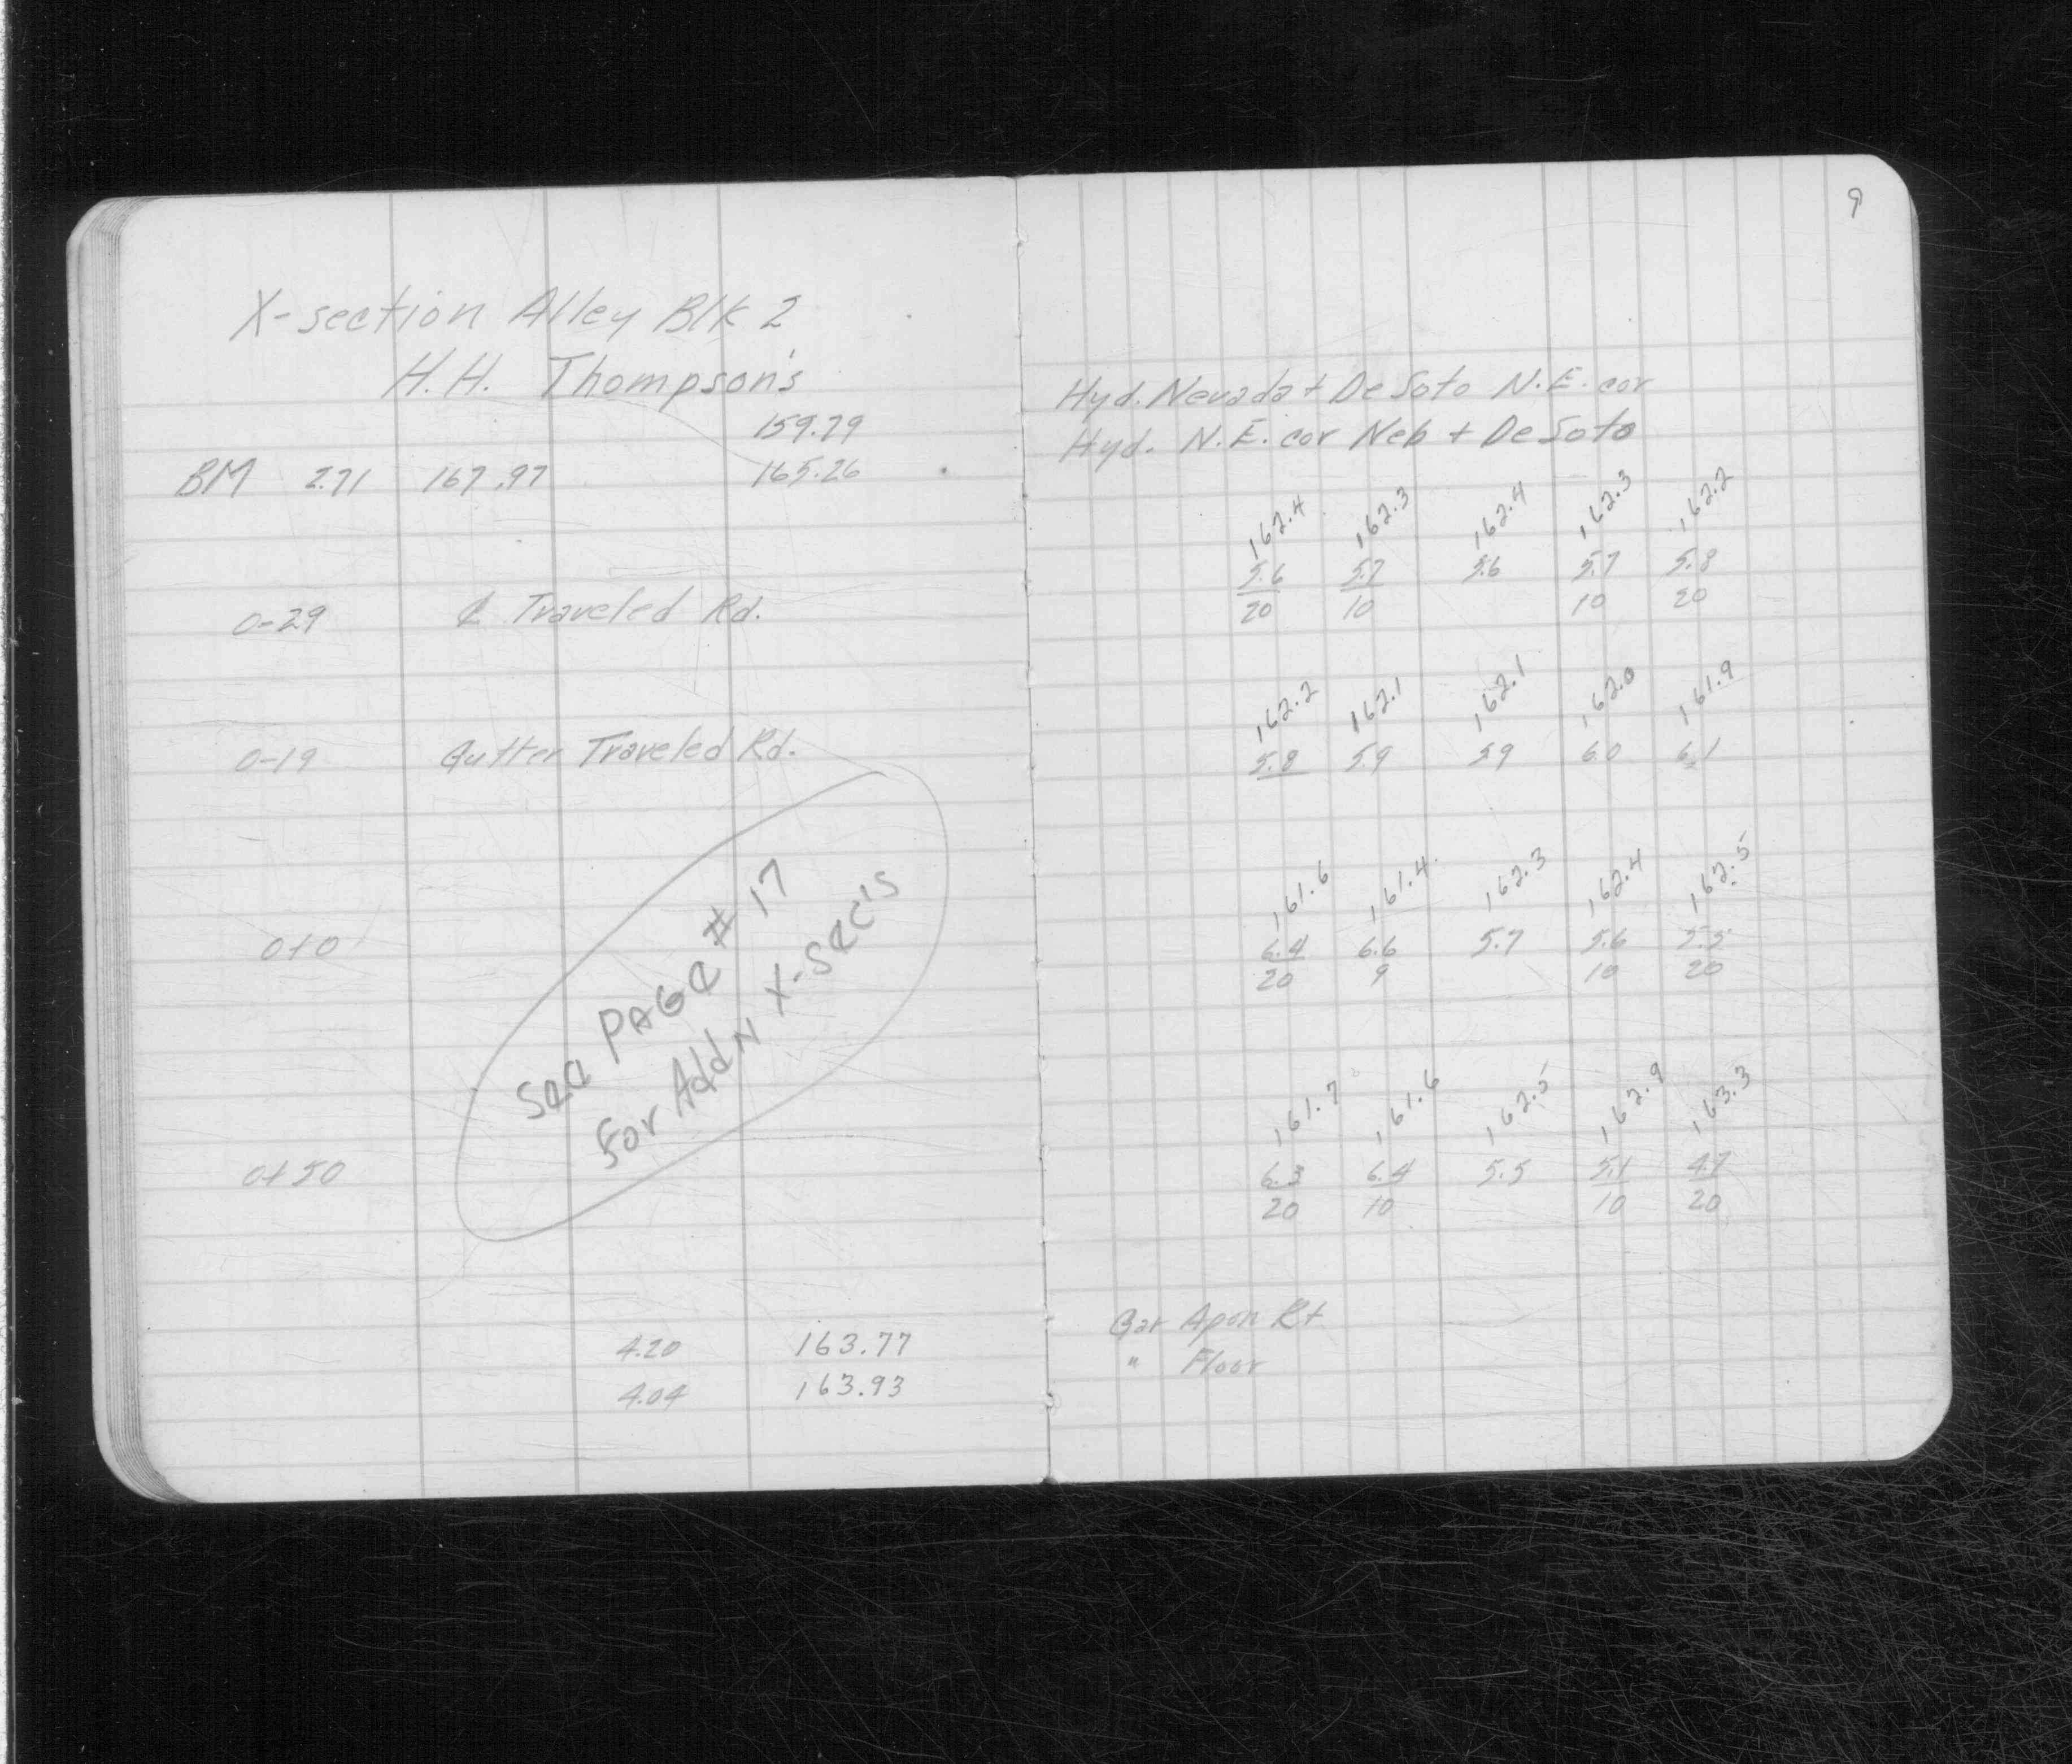 X-section Alley Blk 2
H.H. Thompson's
159.29
BM 2.71 167.97 165.26
0-29 ℄ Traveled Rd.
0-19 Gutter Traveled Rd.
0+0
See Page # 17
For Addn X-Sec's
0+50
4.20 163.77
4.04 163.93
9
Hyd. Nevada + De Soto N.E. cor
Hyd. N.E. cor Neb + De Soto
162.4 162.3 162.4 162.3 162.2
5.6 5.7 5.6 5.7 5.8
20 10 10 20
162.2 162.1 162.1 162.0 161.9
5.8 5.9 5.9 6.0 6.1
161.6 161.4 162.3 162.4 162.5
6.4 6.6 5.7 5.6 5.5
20 9 10 20
161.7 161.6 162.5 162.9 163.3
6.3 6.4 5.5 5.1 4.7
20 10 10 20
Gar Apon Rt
" Floor